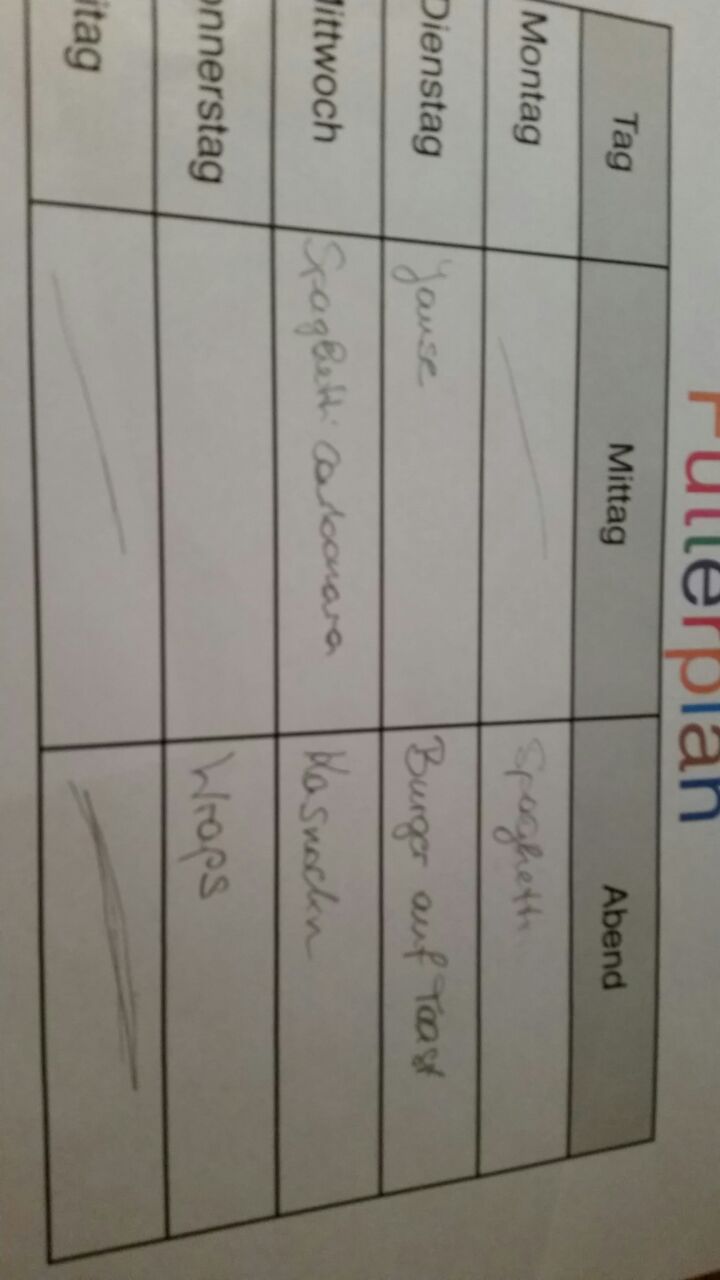 Futterplan
Tag Mittag Abend
Montag Spaghetti
Dienstag Jause Burger auf Toast
Mittwoch Spaghetti Carbonara Kasnockn
onnerstag Wraps
itag